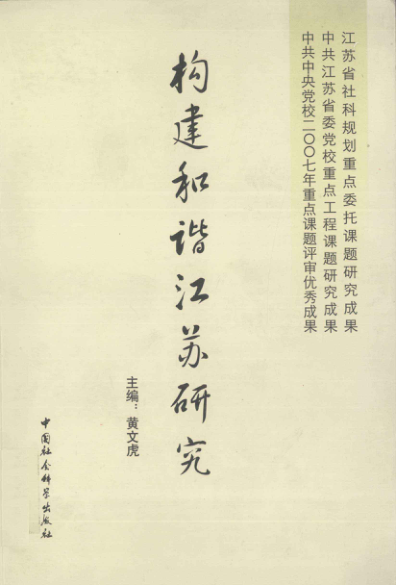 江苏省社科规划重点委托课题研究成果
中共江苏省委党校重点工程课题研究成果
中共中央党校二〇〇七年重点课题评审优秀成果
构建和谐江苏研究
主编：黄文虎
中国社会科学出版社